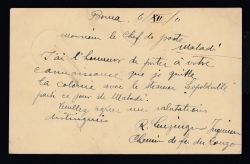 Boma, 6/XII/11
Monsieur le Chef de poste
Matadi
J'ai l'honneur de porter à votre
connaissance que je quitte
la colonie avec le steamer Léopoldville
parti ce jour de Matadi.
Veuillez agréer mes salutations
distinguées
R.
Chemin de fer du Congo